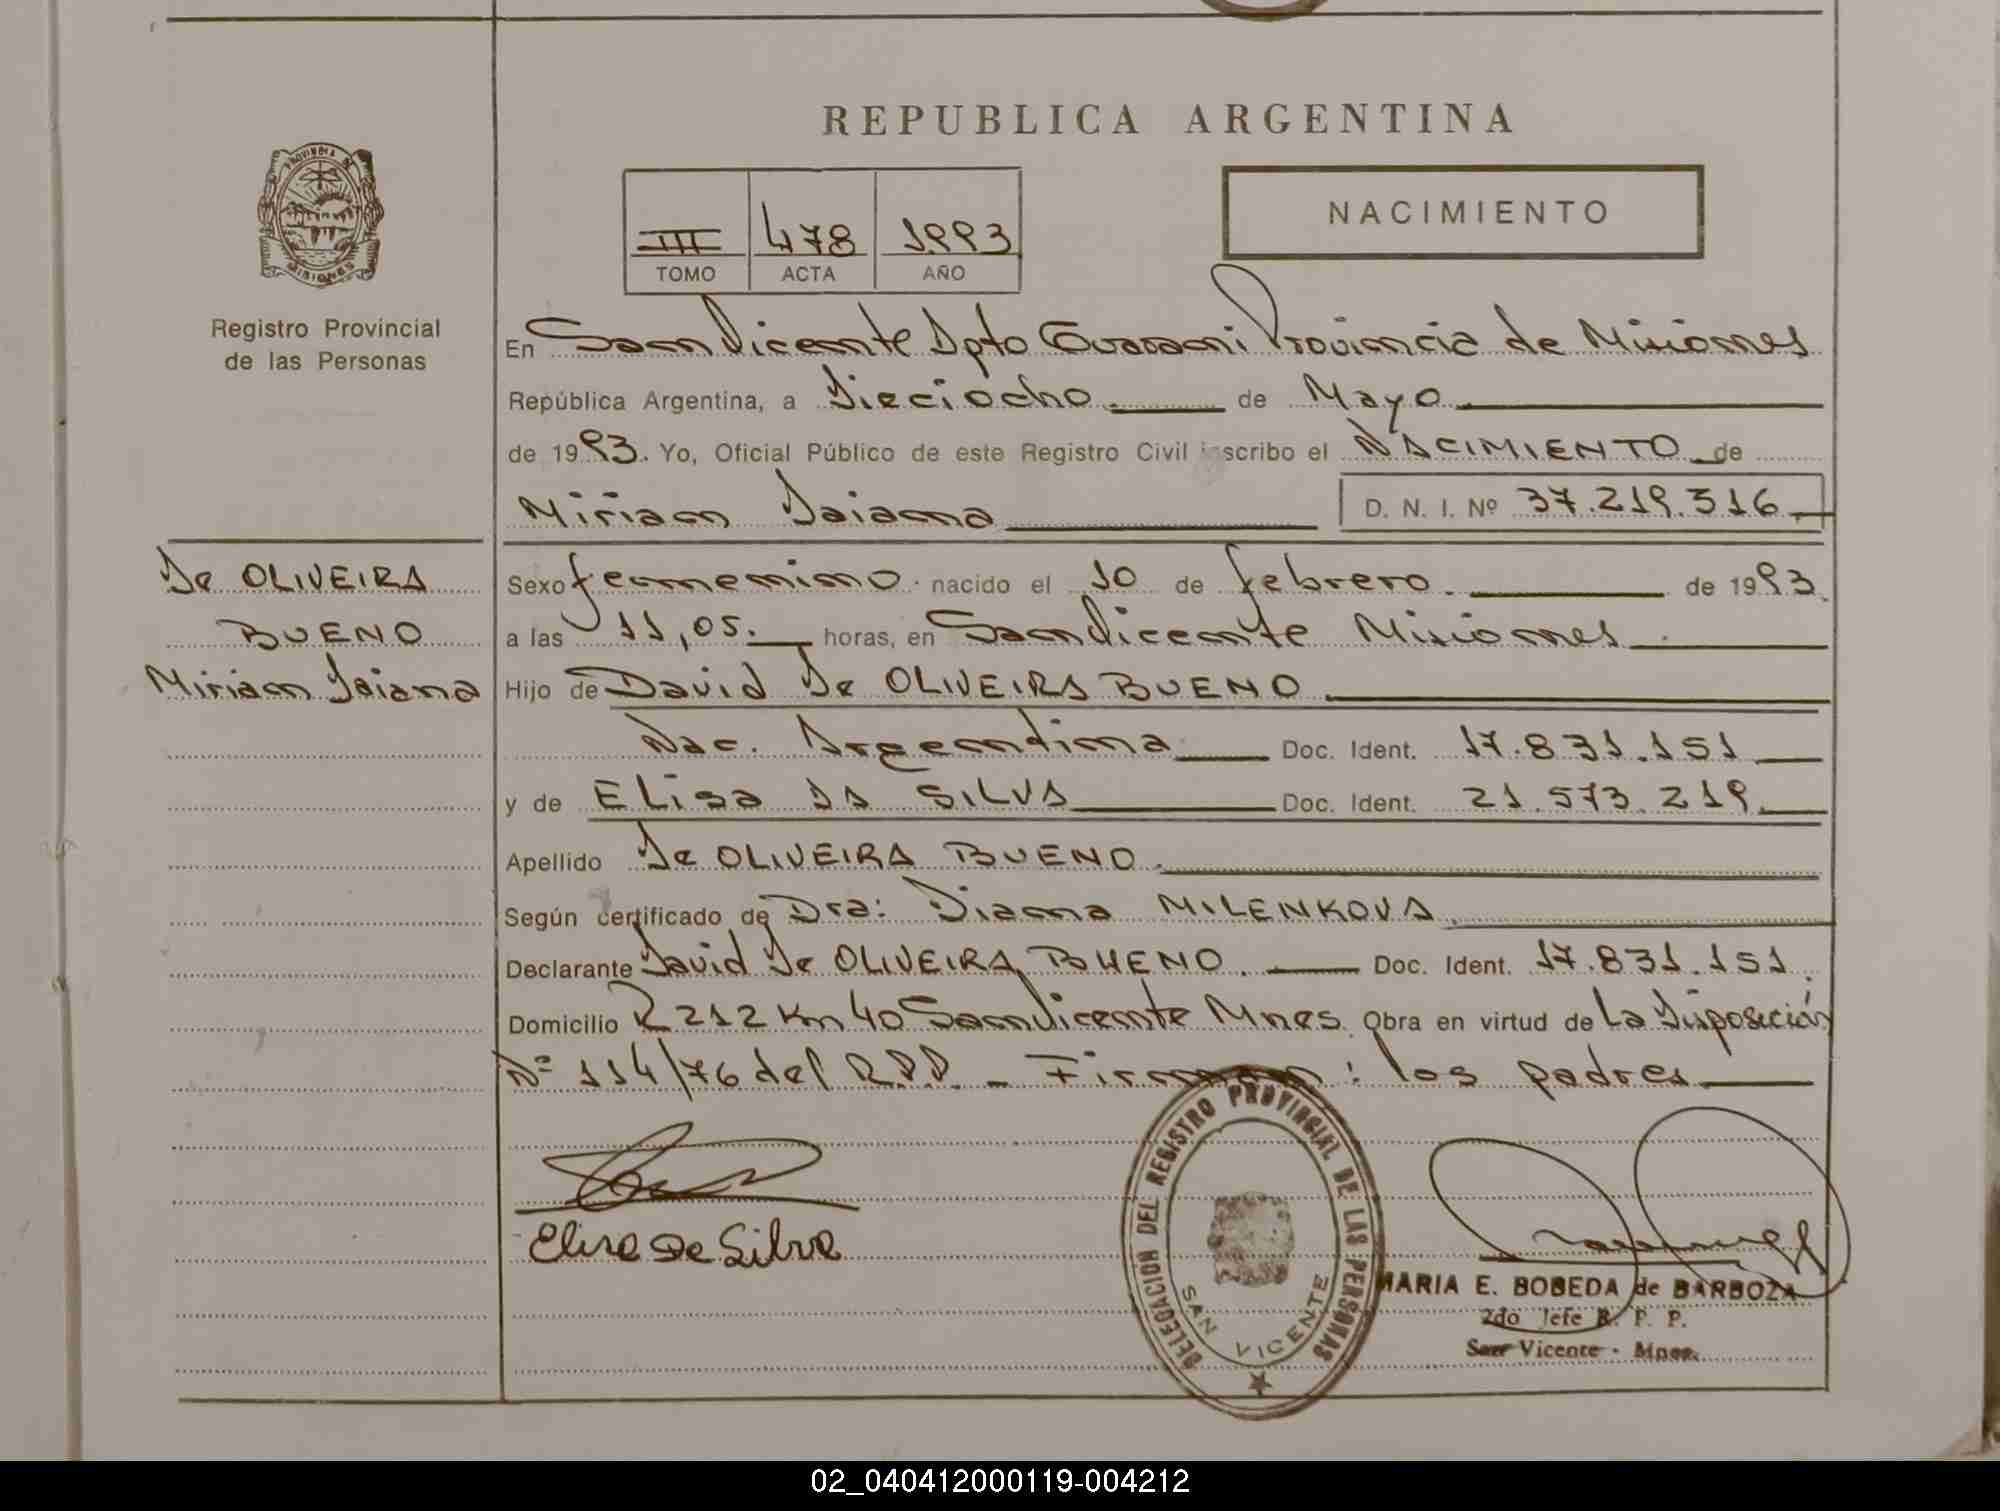 REPUBLICA ARGENTINA
PROVINCIA DE
MISIONES
Registro Provincial
de las Personas
III 478 1993
TOMO ACTA AÑO
NACIMIENTO
En San Vicente Dpto Guarani Provincia de Misiones
República Argentina, a Dieciocho. de Mayo
de 1993. Yo, Oficial Público de este Registro Civil inscribo el NACIMIENTO de
Miriam Daiana D. N. I. Nº 37.219.316
De OLIVEIRA
BUENO
Miriam Daiana
Sexo femenino. nacido el 10 de febrero. de 1993
a las 11,05. horas, en San Vicente Misiones.
Hijo de David De OLIVEIRA BUENO.
Nac. Argentina Doc. Ident. 17.831.151
y de Elisa DA SILVA Doc. Ident. 21.573.219.
Apellido De OLIVEIRA BUENO.
Según certificado de Dra: Diana MILENKOVA.
Declarante David De OLIVEIRA BUENO. Doc. Ident. 17.831.151.
Domicilio R 212 Km 40 San Vicente Mnes. Obra en virtud de La Disposición
Nº 114/76 del R.P.P. - Firman: los padres
Elisa De Silva
DELEGACION DEL REGISTRO PROVINCIAL DE LAS PERSONAS
SAN VICENTE
MARIA E. BOBEDA de BARBOZA
2do Jefe R. P. P.
San Vicente - Mnes.
02_040412000119-004212